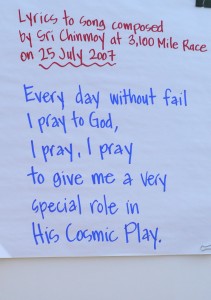 Lyrics to song composed
by Sri Chinmoy at 3,100 Mile Race
on 25 July 2007
Every day without fail
I pray to God,
I pray, I pray
to give me a very
special role in
His Cosmic Play.